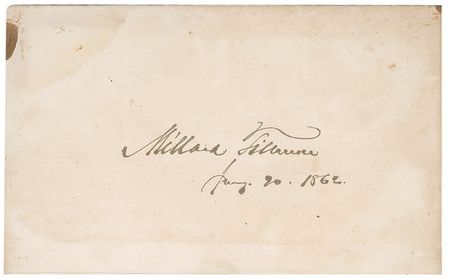 Millard Fillmore
Jany. 20. 1862.